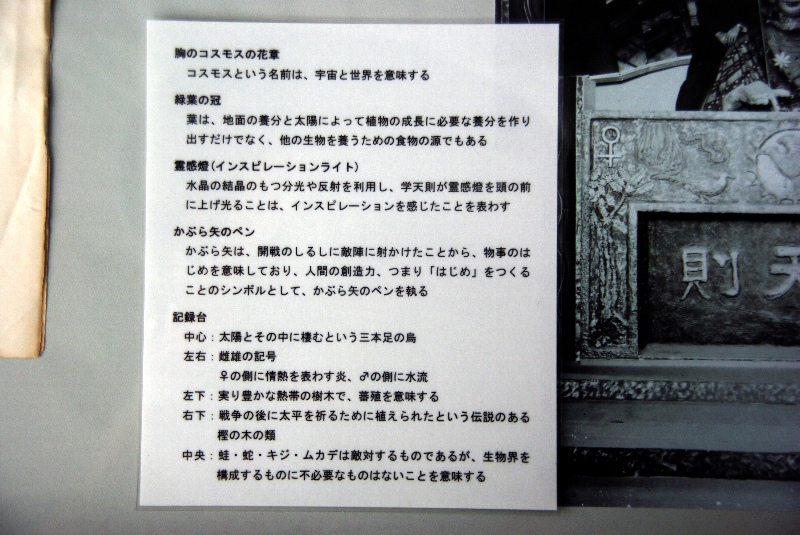 胸のコスモスの花章
コスモスという名前は、宇宙と世界を意味する
緑葉の冠
葉は、地面の養分と太陽によって植物の成長に必要な養分を作り
出すだけでなく、他の生物を養うための食物の源でもある
霊感燈(インスピレーションライト)
水晶の結晶のもつ分光や反射を利用し、学天則が霊感燈を頭の前
に上げ光ることは、インスピレーションを感じたことを表わす
かぶら矢のペン
かぶら矢は、開戦のしるしに敵陣に射かけたことから、物事のは
じめを意味しており、人間の創造力、つまり「はじめ」をつくる
ことのシンボルとして、かぶら矢のペンを執る
記録台
中心:太陽とその中に棲むという三本足の烏
左右:雌雄の記号
♀の側に情熱を表わす炎、♂の側に水流
左下:実り豊かな熱帯の樹木で、蕃殖を意味する
右下:戦争の後に太平を祈るために植えられたという伝説のある
樫の木の類
中央:蛙・蛇・キジ・ムカデは敵対するものであるが、生物界を
構成するものに不必要なものはないことを意味する
♀
則天